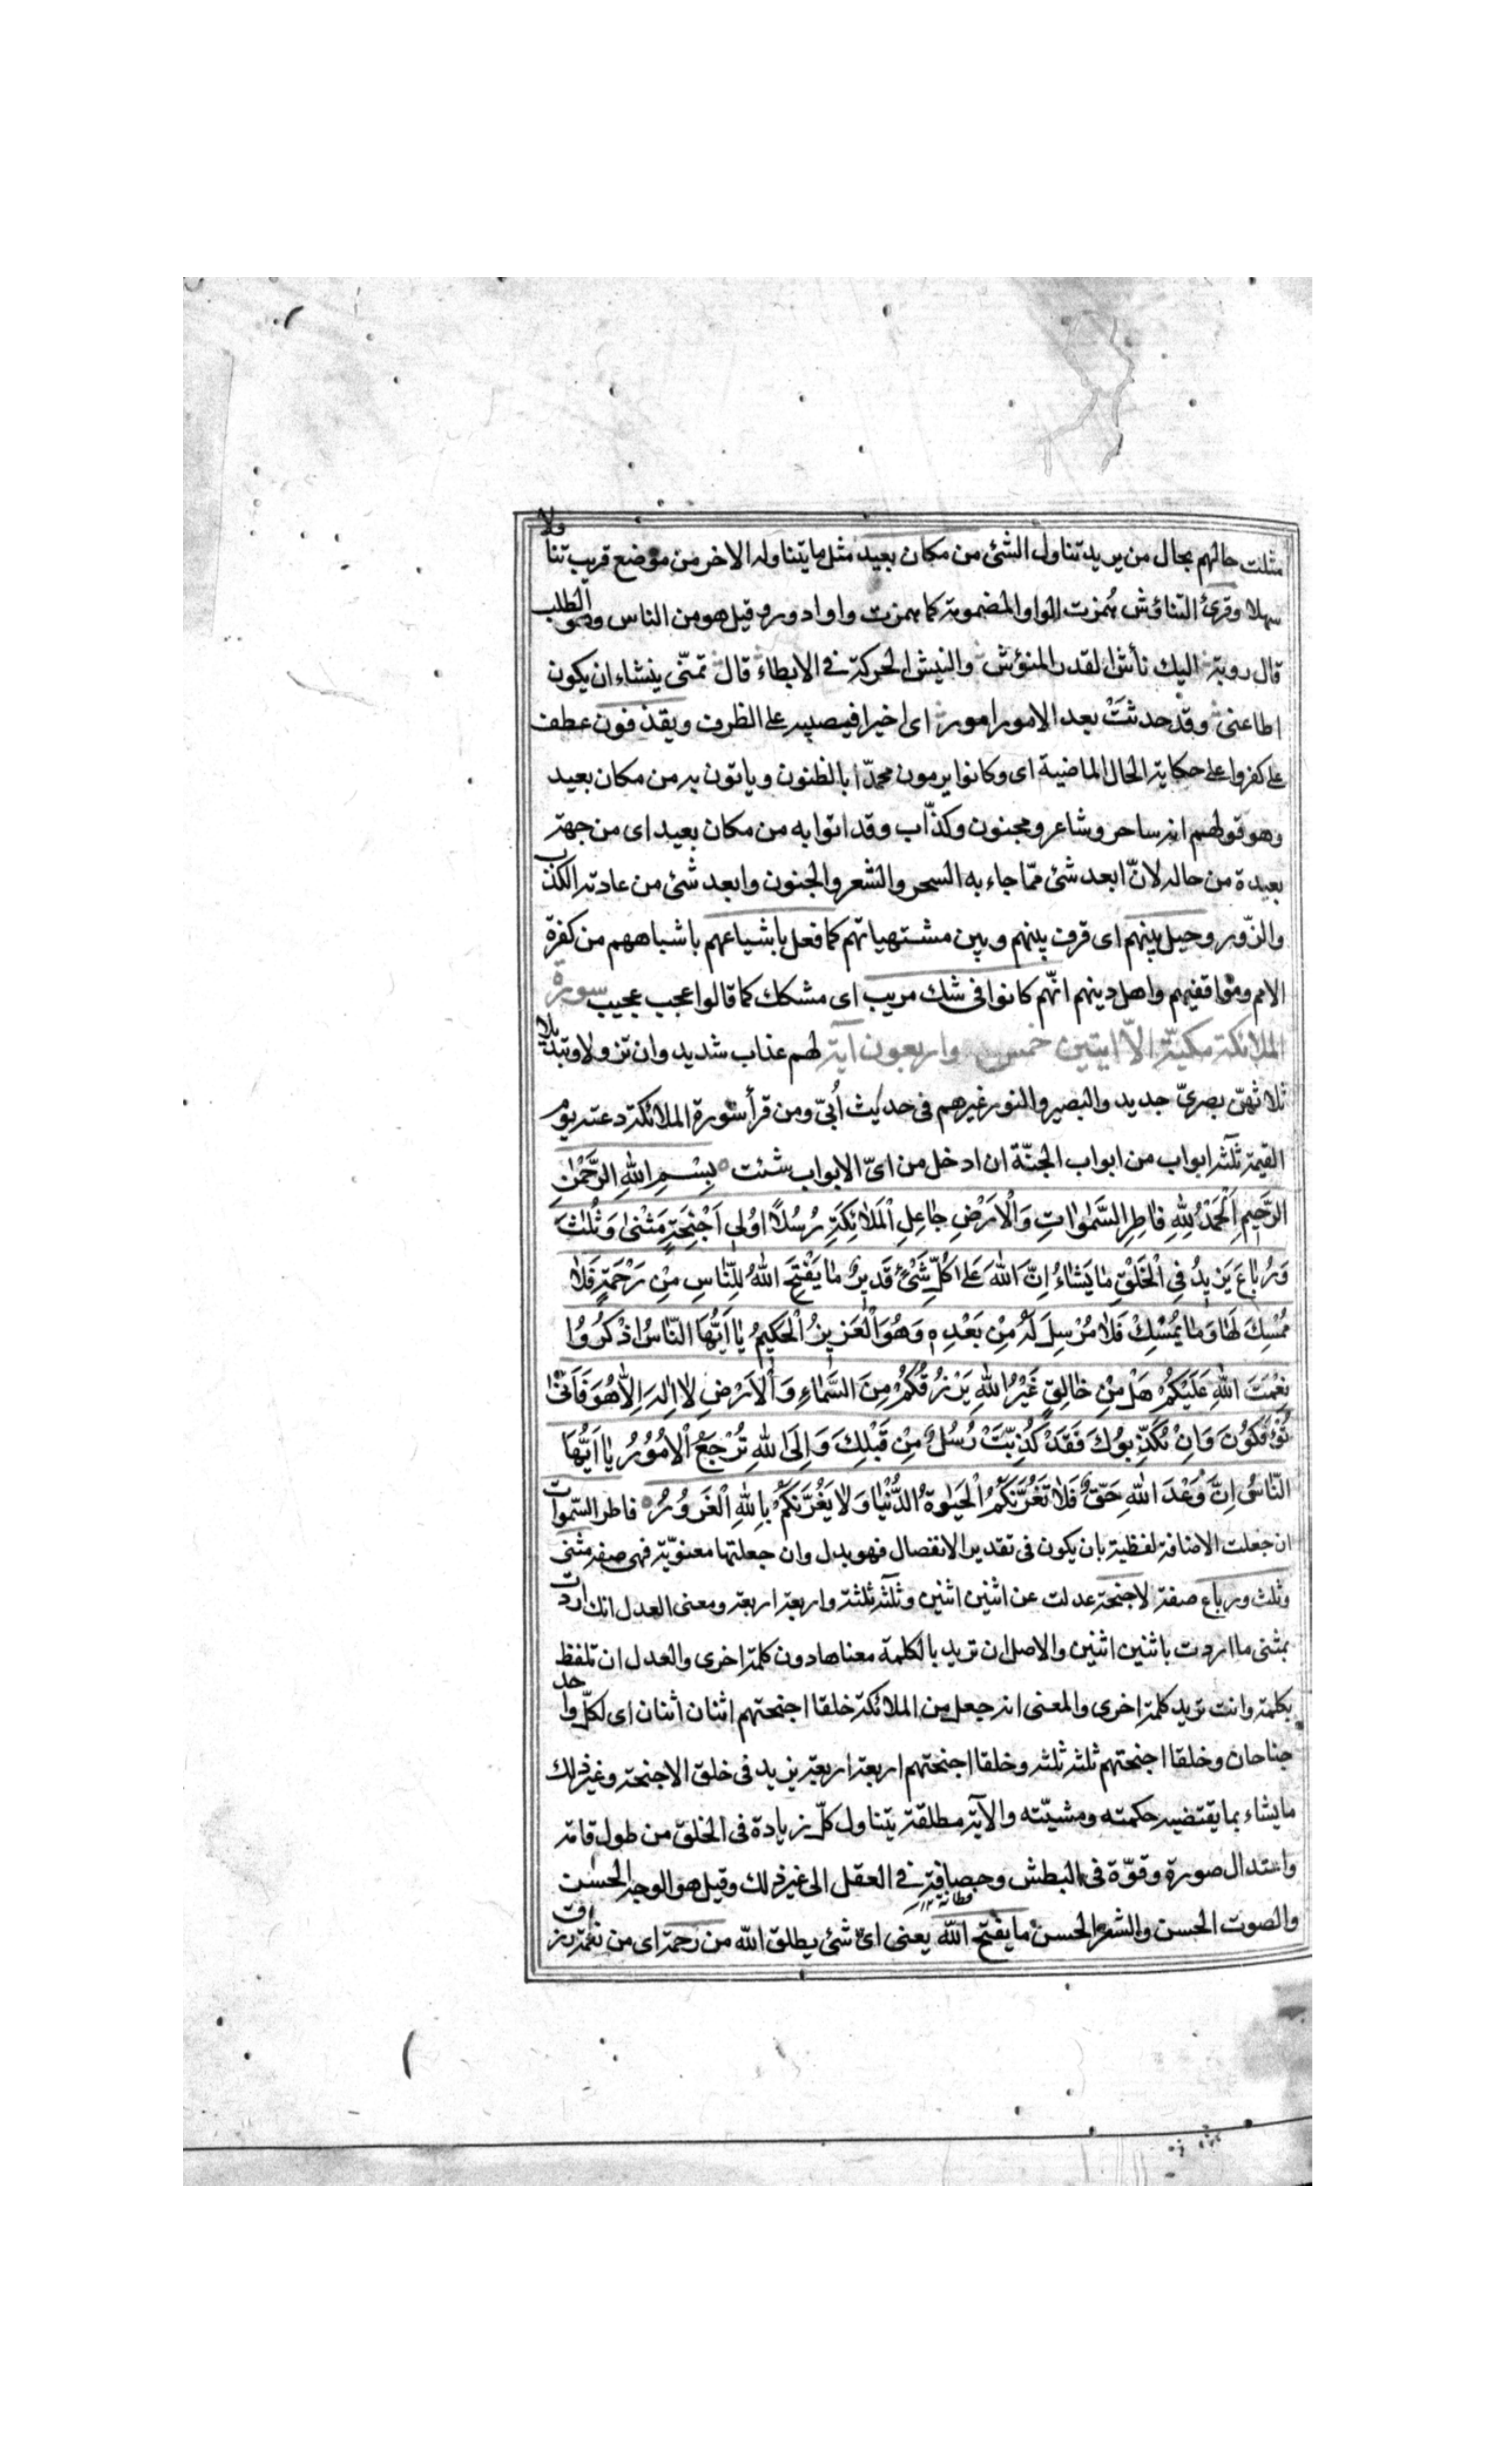 مثلت حالهم بحال من يريد تناول الشئ من مكان بعيد مثل ما يتناوله الاخر من موضع قريب تناولا
سهلا وقرئ التناؤش همزت الواو المضمومة كما همزت واو ادور وقيل هو من الناس وهو الطلب
قال روبة اليك نأش القدر المنؤش والنيش الحركة في الابطاء قال تمنّى ينشاء ان يكون
اطاعنى وقد حدثتْ بعد الامور امور اى اخيرا فيصير على الظرف ويقذفون عطف
على كفروا على حكاية الحال الماضية اى وكانوا يرمون محمدّا بالظنون وياتون به من مكان بعيد
وهو قولهم انه ساحر وشاعر ومجنون وكذّاب وقد اتوا به من مكان بعيد اى من جهة
بعيدة من حاله لانّ ابعد شئ ممّا جاء به السحر والشعر والجنون وابعد شئ من عادته الكذب
والزّور وحيل بينهم اى فرق بينهم وبين مشتهياتهم كما فعل باشياعهم باشباههم من كفرة
الامم وموافقيهم واهل دينهم انّهم كانوا فى شك مريب اى مشكك كما قالوا عجب عجيب سورة
الملائكة مكيّة الاّ ايتين خمس واربعون آية لهم عذاب شديد وان تزولا وتبديلا
ثلاثهنّ بصرىّ جديد والبصير والنور غيرهم فى حديث أُبىّ ومن قرأ سورة الملائكة دعته يوم
القيمة ثلثة ابواب من ابواب الجنّة ان ادخل من اىّ الابواب شئت بِسْمِ اللهِ الرَّحْمٰنِ
الرَّحِيمِ اَلْحَمْدُ لِلّٰهِ فَاطِرِ السَّمٰوَاتِ وَالْاَرْضِ جَاعِلِ الْمَلٰائِكَةِ رُسُلًا اُولِى اَجْنِحَةٍ مَثْنٰى وَثُلٰثَ
وَرُبَاعَ يَزِيدُ فِى الْخَلْقِ مَا يَشَاءُ اِنَّ اللهَ عَلٰى كُلِّ شَىْءٍ قَدِيرٌ مَا يَفْتَحِ اللهُ لِلنَّاسِ مِنْ رَحْمَةٍ فَلَا
مُمْسِكَ لَهَا وَمَا يُمْسِكْ فَلَا مُرْسِلَ لَهُ مِنْ بَعْدِهِ وَهُوَ الْعَزِيزُ الْحَكِيمُ يَا اَيُّهَا النَّاسُ اذْكُرُوا
نِعْمَتَ اللهِ عَلَيْكُمْ هَلْ مِنْ خَالِقٍ غَيْرُ اللهِ يَرْزُقُكُمْ مِنَ السَّمَاءِ وَالْاَرْضِ لَا اِلٰهَ اِلَّا هُوَ فَاَنّٰى
تُؤْفَكُونَ وَاِنْ يُكَذِّبُوكَ فَقَدْ كُذِّبَتْ رُسُلٌ مِنْ قَبْلِكَ وَاِلَى اللهِ تُرْجَعُ الْاُمُورُ يَا اَيُّهَا
النَّاسُ اِنَّ وَعْدَ اللهِ حَقٌّ فَلَا تَغُرَّنَّكُمُ الْحَيٰوةُ الدُّنْيَا وَلَا يَغُرَّنَّكُمْ بِاللهِ الْغَرُورُ فاطر السّموات
ان جعلت الاضافة لفظية بان يكون فى تقدير الانفصال فهو بدل وان جعلتها معنويّة فهى صفة مثنى
وثلث ورباع صفة لاجنحة عدلت عن اثنين اثنين وثلثة ثلثة واربعة اربعة ومعنى العدل انك اردت
بمثنى ما اردت باثنين اثنين والاصل ان تريد بالكلمة معناها دون كلمة اخرى والعدل ان تلفظ
بكلمة وانت تريد كلمة اخرى والمعنى انه جعل من الملائكة خلقا اجنحتهم اثنان اثنان اى لكلّ واحد
جناحان وخلقا اجنحتهم ثلثة ثلثة وخلقا اجنحتهم اربعة اربعة يزيد فى خلق الاجنحة وغير ذلك
ما يشاء بما يقتضيه حكمته ومشيّته والآية مطلقة يتناول كلّ زيادة فى الخلق من طول قامة
واعتدال صورة وقوّة فى البطش وحصافة في العقل الى غير ذلك وقيل هو الوجه الحسن
والصوت الحسن والشعر الحسن ما يفتح الله يعنى اىّ شئ يطلق الله من رحمة اى من نعمة رزق